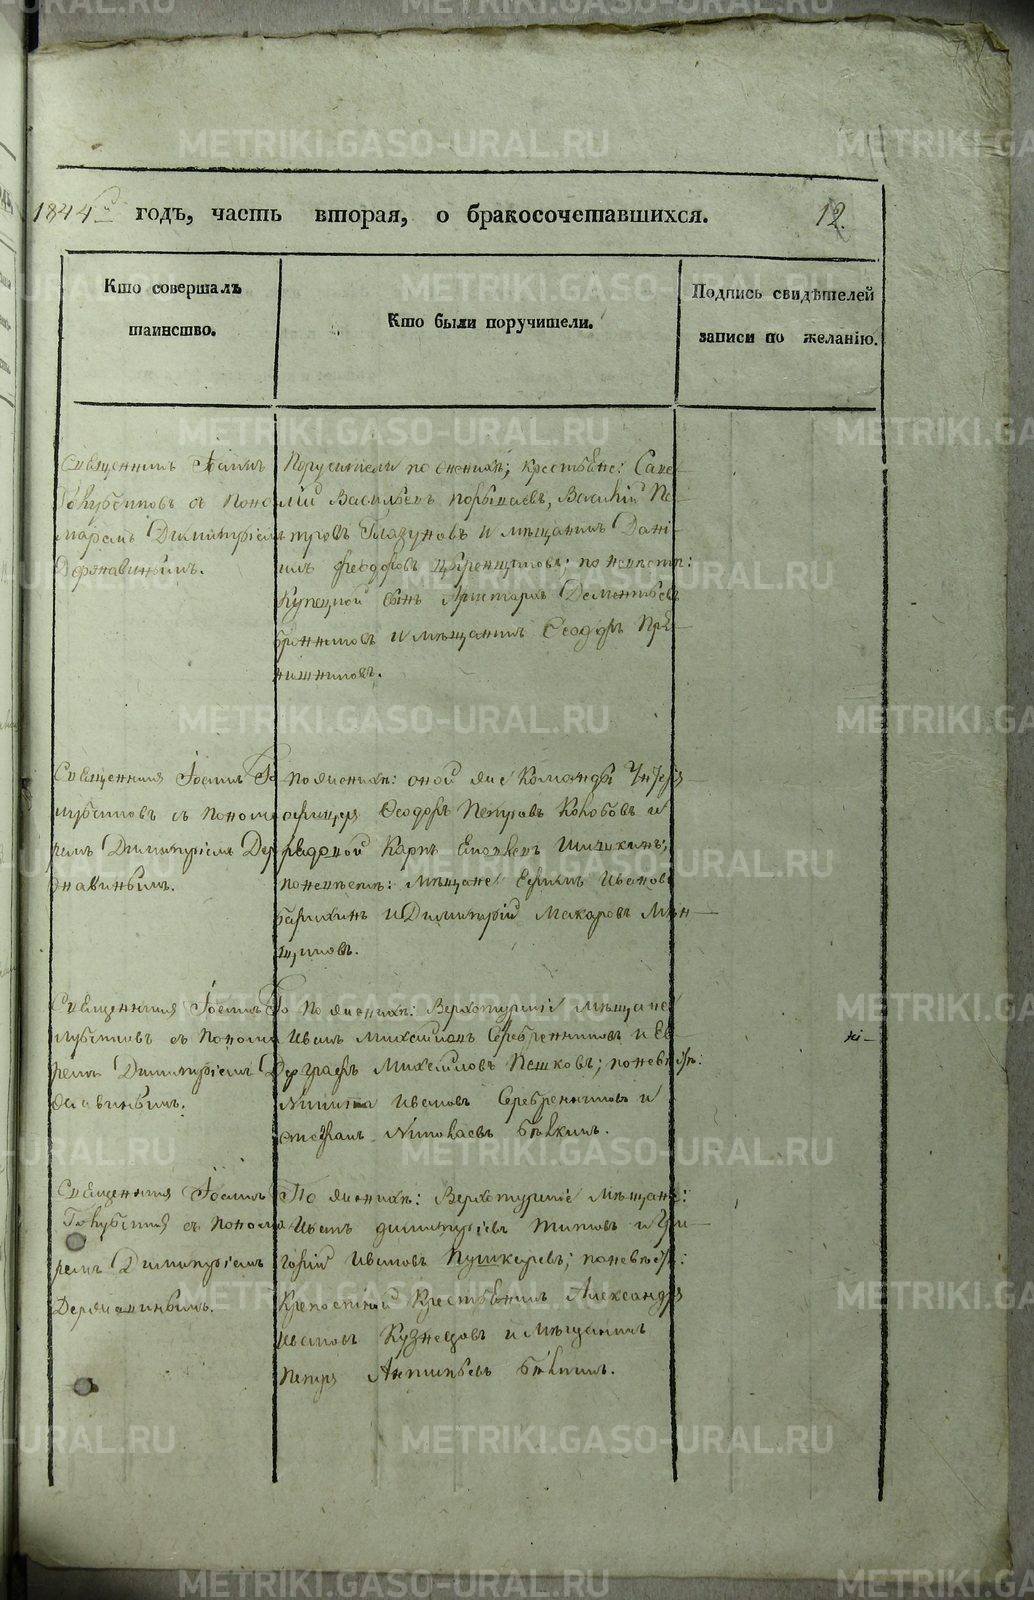 1844 годъ, часть вторая, о бракосочетавшихся. 12.
Кто совершалъ
таинство.
Кто были поручители.
Подпись свидѣтелей
записи по желанію.
Священникъ Іоаннъ
Голубчиковъ съ Поно
маремъ Димитріемъ
Державинымъ.
Поручители по женихѣ; крестьяне: Саве
лій Васильевъ, Василій Пе
тровъ Глазуновъ и мѣщанинъ Дані
илъ Феодоровъ; по невѣстѣ:
Купецкой сынъ Аристархъ Дементьевъ
и мѣщанинъ Феодоръ
Священникъ Іоаннъ Го
лубчиковъ съ Понома
ремъ Димитріемъ Дер
жавинымъ.
По женихѣ: оной же Команды Унтеръ
офицеръ Феодоръ Петровъ Коробовъ и
рядовой Карпъ Шишкинъ;
по невѣстѣ: мѣщане Ефимъ Ивановъ
и Димитрій Макаровъ
Священникъ Іоаннъ Го
лубчиковъ съ Понома
ремъ Димитріемъ Дер
жавинымъ.
По женихѣ: Верхотурскіе мѣщане
Иванъ Серебренниковъ и Ев
графъ Михайловъ Пешковъ; по невѣстѣ:
Никита Ивановъ Серебренниковъ и
Степанъ Николаевъ Бѣлкинъ.
Священникъ Іоаннъ
Голубчиковъ съ Понома
ремъ Димитріемъ
Державинымъ.
По женихѣ: Верхотурскіе мѣщане:
Иванъ Димитріевъ Титовъ и Гри
горій Ивановъ Пушкаревъ; по невѣстѣ:
Крепостной Крестьянинъ Александръ
Ивановъ Кузнецовъ и мѣщанинъ
Петръ Антипьевъ Бѣлкинъ.
METRIKI.GASO-URAL.RU